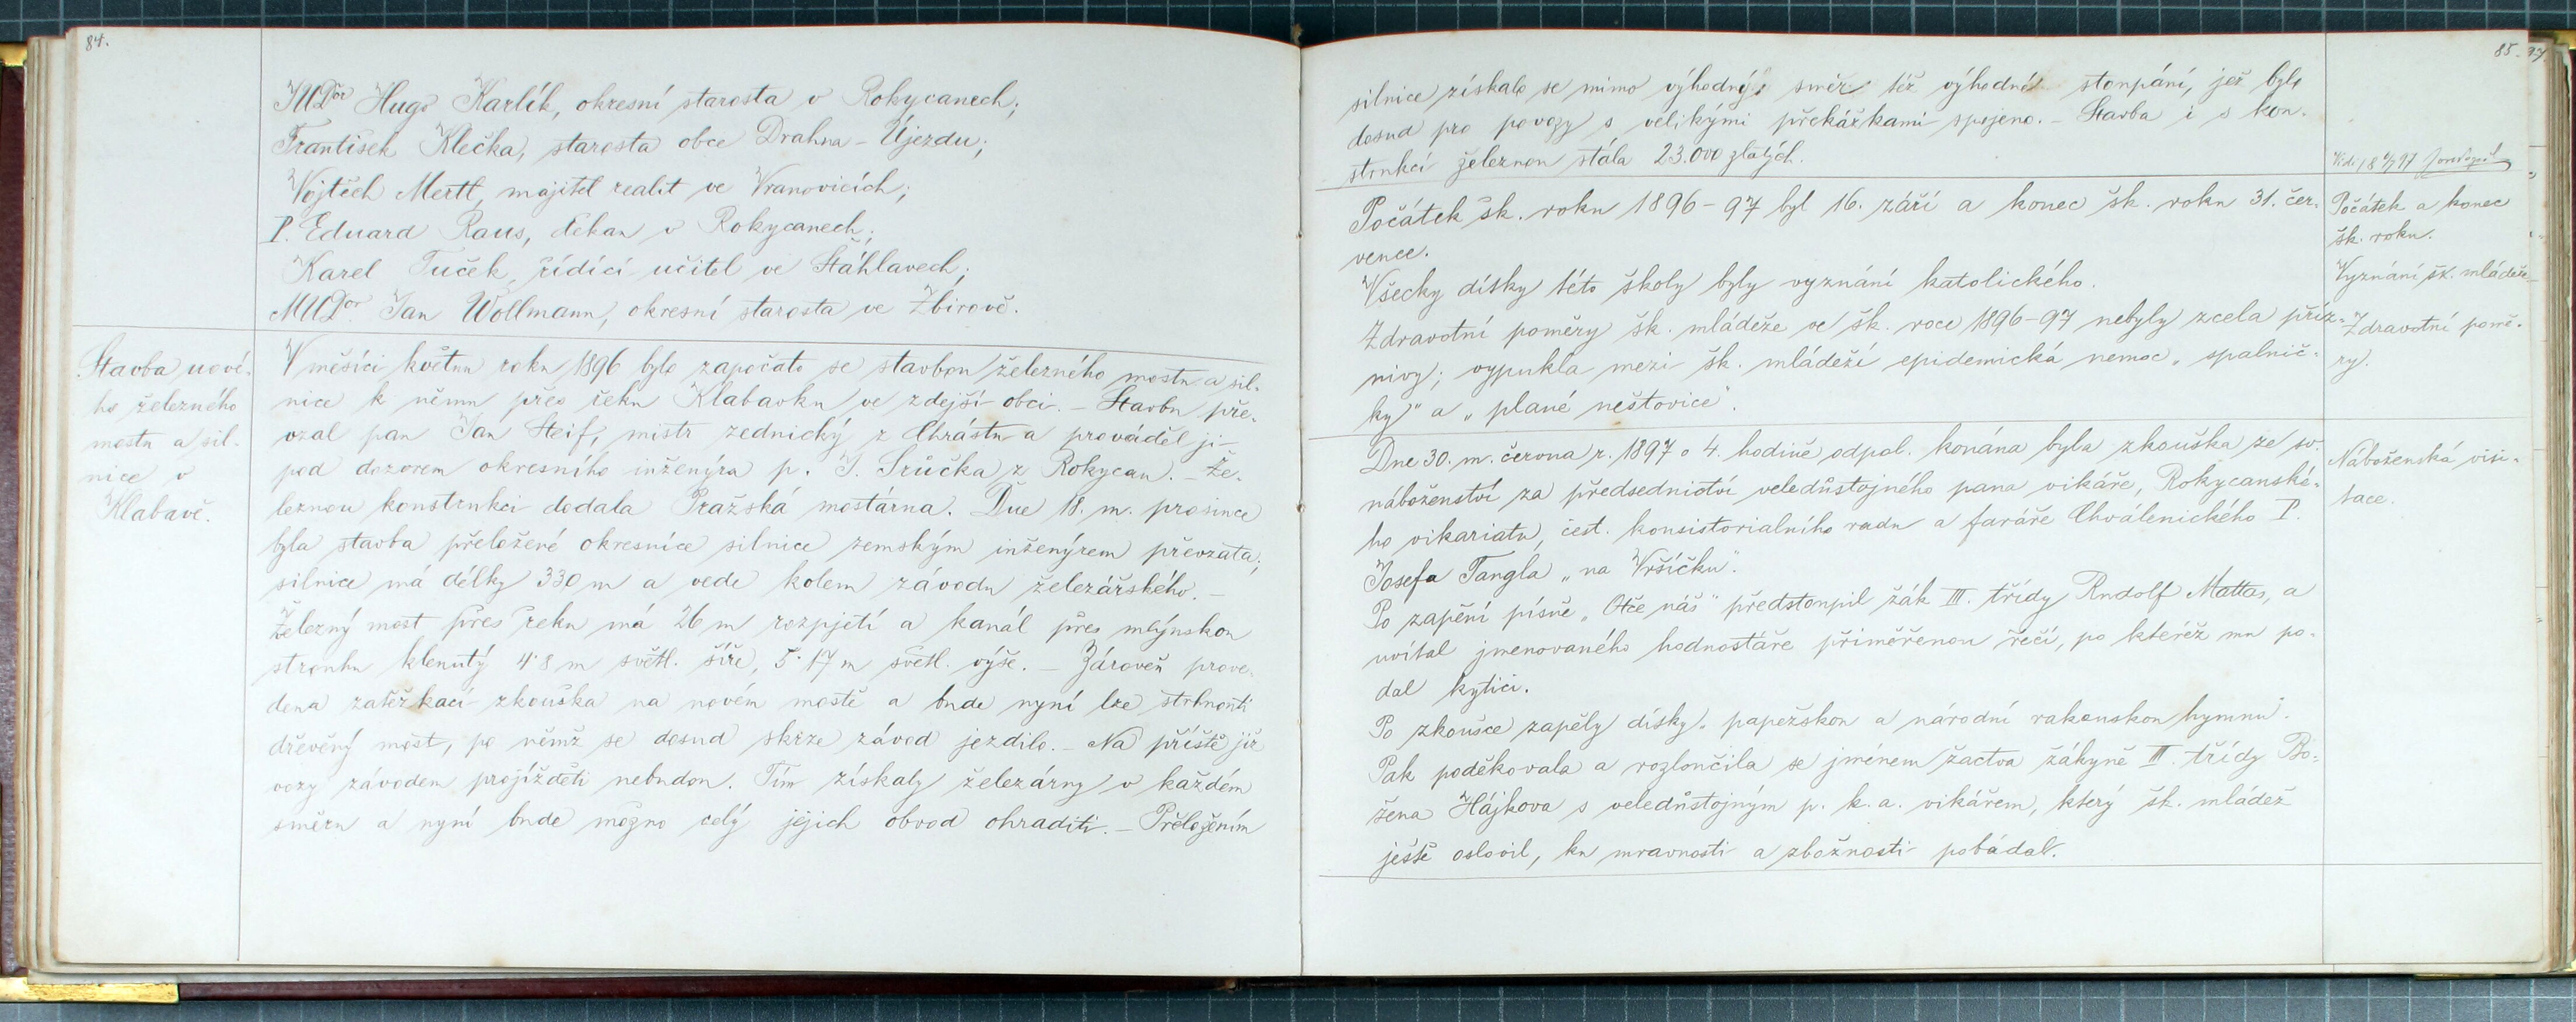 84.
JUDor Hugo Karlík, okresní starosta v Rokycanech;
František Klečka, starosta obce Drahna-Újezdu;
Vojtěch Mertl, majitel realit ve Vranovicích;
P. Eduard Raus, děkan v Rokycanech;
Karel Tuček, řídící učitel ve Šťáhlavech;
MUDor Jan Wollmann, okresní starosta ve Zbirově.
Stavba nové-
ho železného
mostu a sil-
nice v
Klabavě.
V měsíci květnu roku 1896 bylo započato se stavbou železného mostu a sil-
nice k němu přes řeku Klabavku ve zdejší obci. – Stavbu pře-
vzal pan Jan Steif, mistr zednický z Chrástu a prováděl ji
pod dozorem okresního inženýra p. J. Srůčka z Rokycan. – Že-
leznou konstrukci dodala Pražská mostárna. Dne 18. m. prosince
byla stavba přeložené okresníce silnice zemským inženýrem převzata;
silnice má délky 330 m a vede kolem závodu železářského. –
Železný most přes řeku má 26 m rozpjetí a kanál přes mlýnskou
strouhu klenutý 4·8 m světl. šíře, 5·17 m světl. výše. – Zároveň prove-
dena zatěžkací zkouška na novém mostě a bude nyní lze strhnouti
dřevěný most, po němž se dosud skrze závod jezdilo. – Na příště již
vozy závodem projížděti nebudou. Tím získaly železárny v každém
směru a nyní bude možno celý jejich obvod ohraditi. – Přeložením
85. 97
silnice získalo se mimo výhodný směr též výhodné stoupání, jež bylo
dosud pro povozy s velikými překážkami spojeno. – Stavba i s kon-
strukcí železnou stála 23.000 zlatých.
Počátek šk. roku 1896–97 byl 16. září a konec šk. roku 31. čer-
vence.
Všecky dítky této školy byly vyznání katolického.
Zdravotní poměry šk. mládeže ve šk. roce 1896–97 nebyly zcela příz-
nivy; vypukla mezi šk. mládeží epidemická nemoc „spalnič-
ky" a „plané neštovice".
Dne 30. m. června r. 1897 o 4. hodině odpol. konána byla zkouška ze sv.
náboženství za předsednictví veledůstojného pana vikáře, Rokycanské-
ho vikariatu, čest. konsistorialního radu a faráře Chválenického P.
Josefa Tangla „na Vršíčku".
Po zapění písně „Otče náš" předstoupil žák III. třídy Rudolf Mattas, a
uvítal jmenovaného hodnostáře přiměřenou řečí, po kteréž mu po-
dal kytici.
Po zkoušce zapěly dítky „papežskou a národní rakouskou hymnu".
Pak poděkovala a rozloučila se jménem žactva žákyně III. třídy Bo-
žena Hájkova s veledůstojným p. k. a. vikářem, který šk. mládež
ještě oslovil, ku mravnosti a zbožnosti pobádal.
Počátek a konec
šk. roku.
Vyznání šk. mládeže
Zdravotní pomě-
ry.
Náboženská visi-
tace.